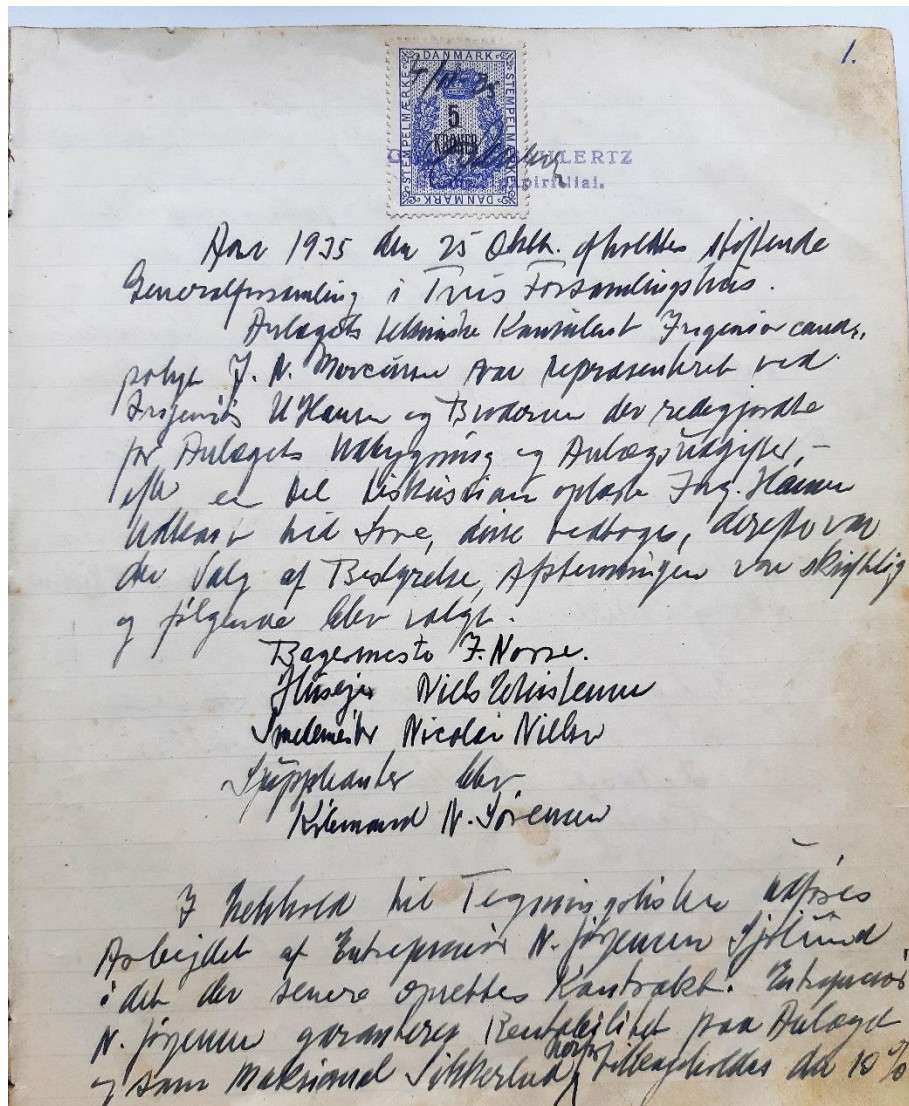 1.
DANMARK
STEMPELMÆRKE
STEMPELMÆRKE
5
KRONER
DANMARK
LERTZ
Papirfilial.
Aar 1935 den 25 Oktb. afholdtes stiftende
Generalforsamling i Tvis Forsamlingshus.
Anlægets tekniske Konsulent Ingeniør cand.
polyt J. N. Marcussen var repræsenteret ved
Ingeniør Hansen og Brodersen der redegjordte
for Anlægets Udbygning og Anlægsudgifter,-
efter en Del Diskussion oplæste Ing. Hansen
Udkast til Love, disse vedtoges, derefter var
der Valg af Bestyrelse, Afstemningen var skriftlig
og følgende blev valgt.
Bagermester J. Norre.
Husejer Niels Christensen
Smedemester Nicolai Nielsen
Suppleanter blev
Købmand N. Sørensen
I Henhold til Tegningslisten udføres
Arbejdet af Entreprenør N. Jørgensen Sjølund
i det der senere oprettes Kontrakt. Entreprenør
N. Jørgensen garanterer Rentabilitet paa Anlæget
og som Maksimal Sikkerhed herfor tilbageholdes da 10%